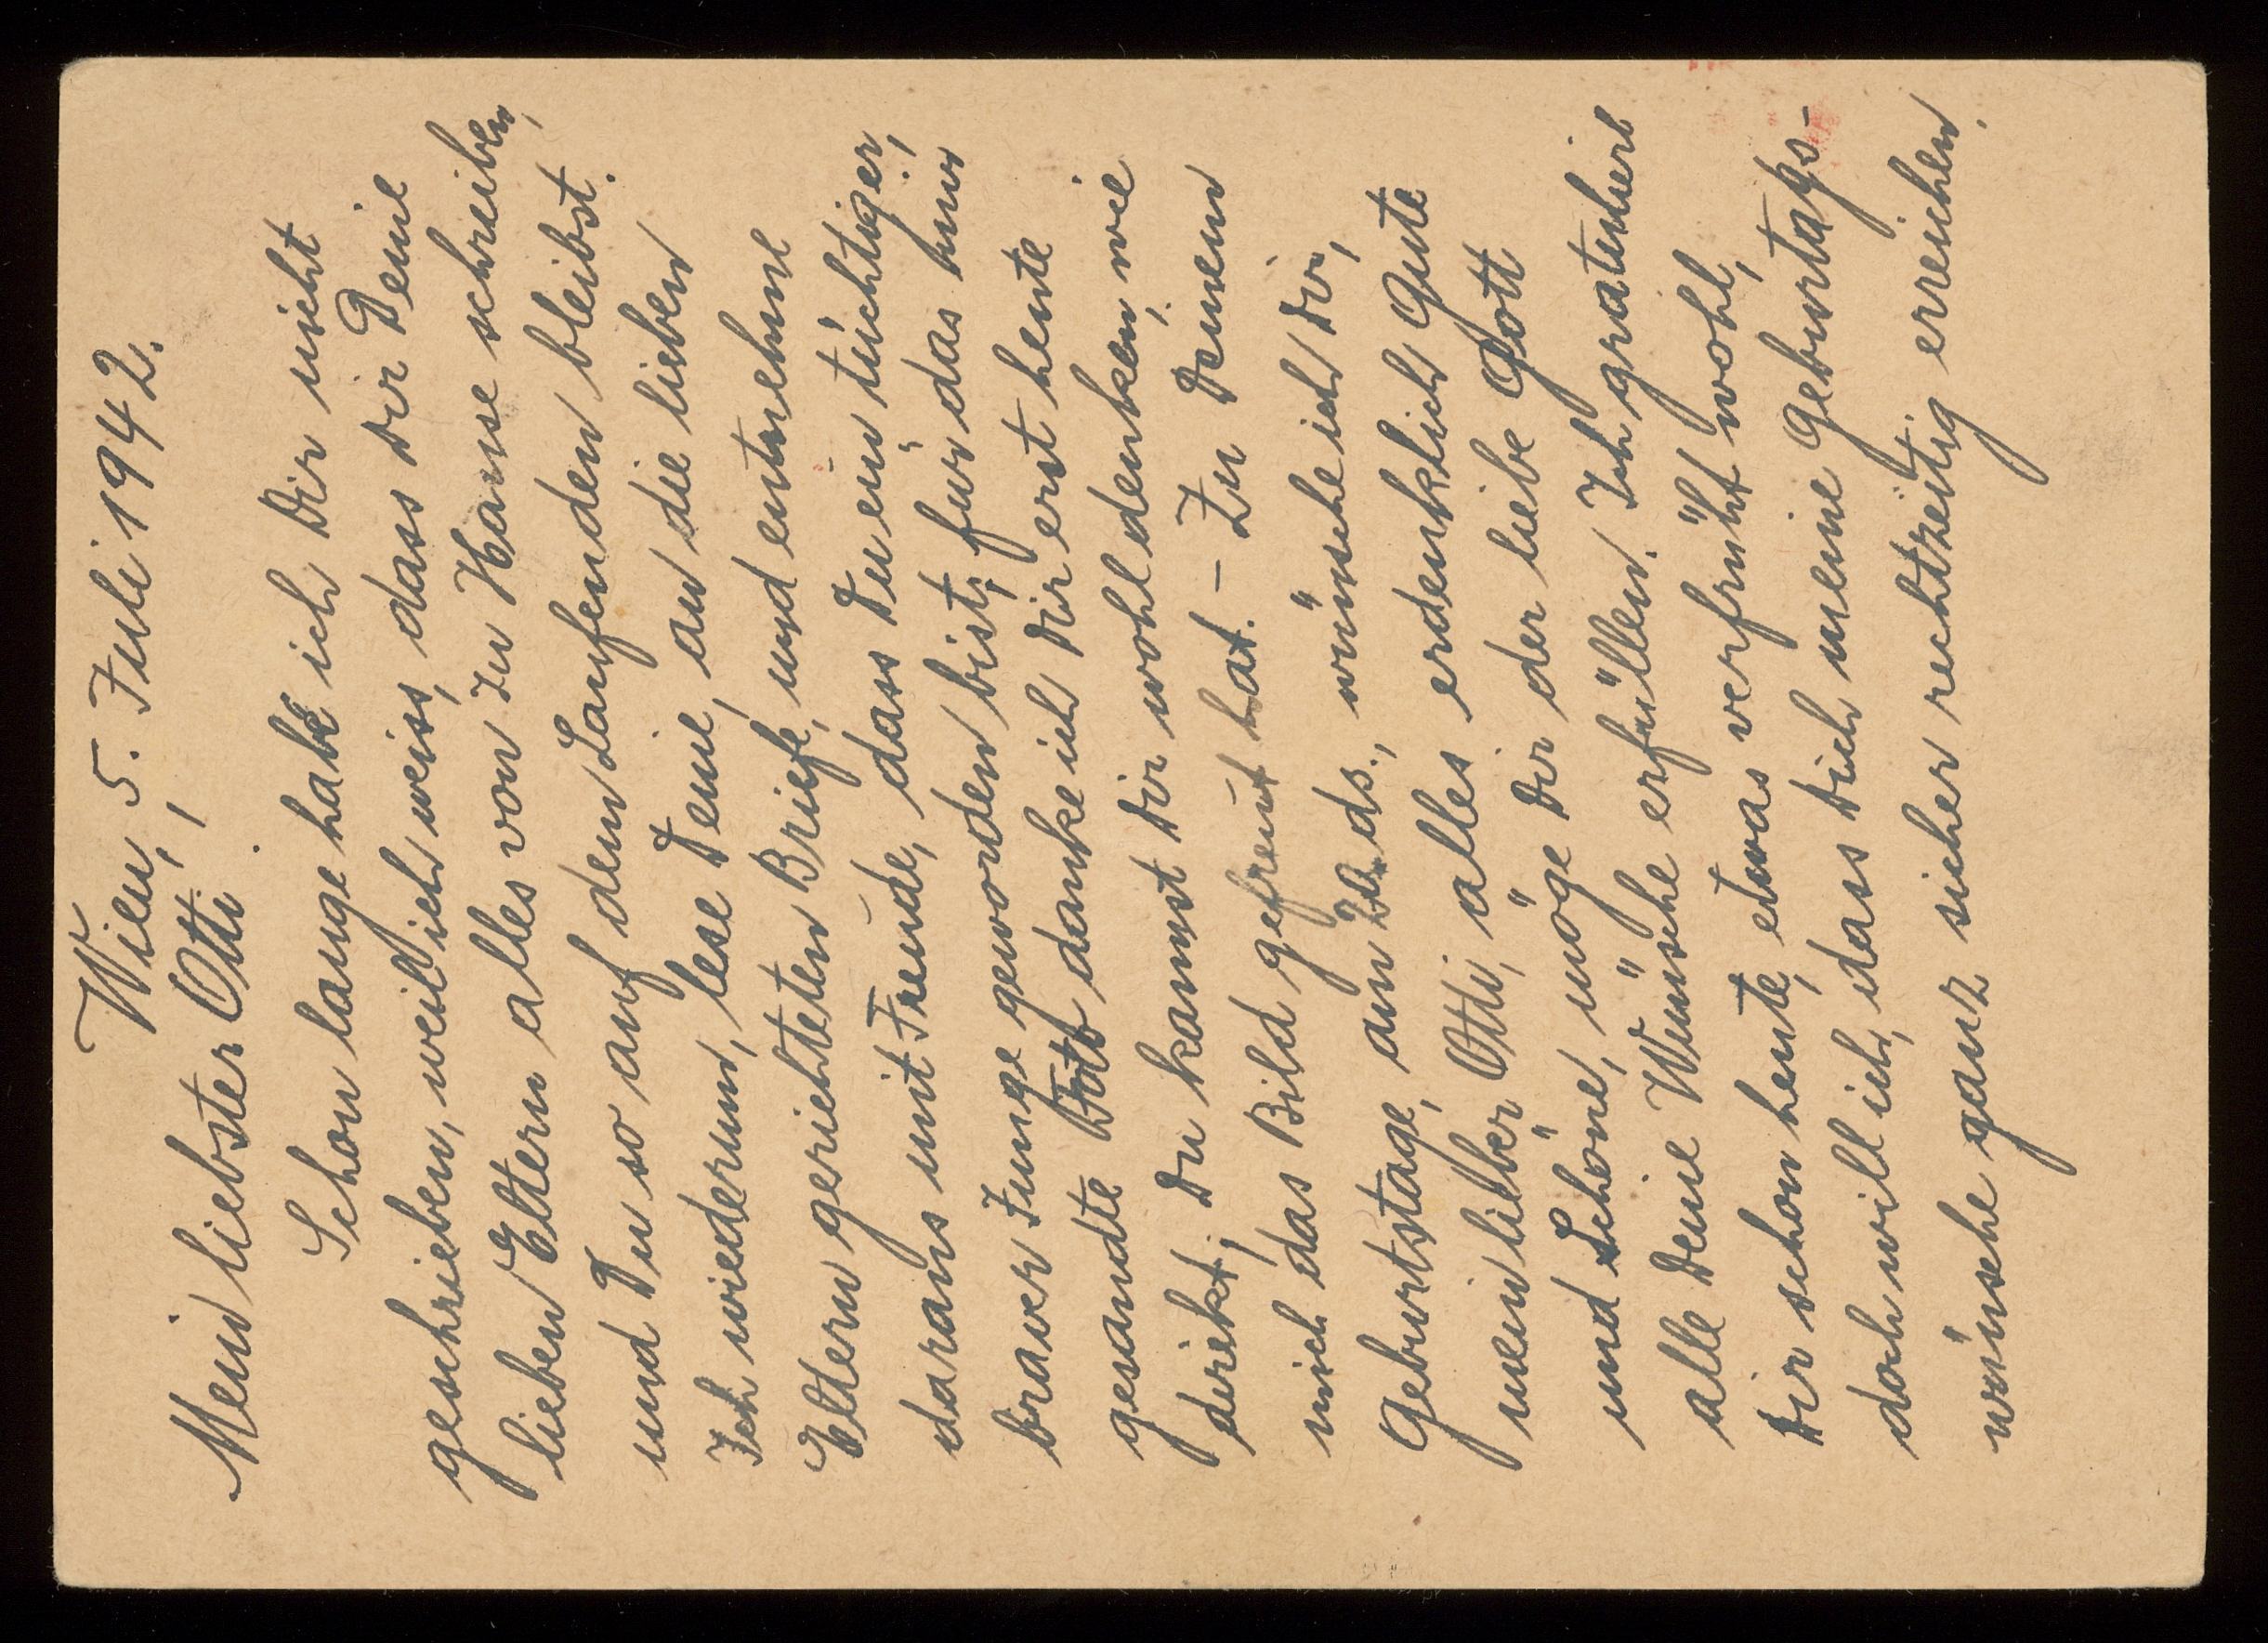 Wien, 5. Juli 1942.
Mein liebster Otti!
Schon lange habe ich Dir nicht
geschrieben, weil ich weiss, dass Dir Deine
lieben Eltern alles von zu Hause schreiben,
und Du so auf dem Laufenden bleibst.
Ich wiederum, lese Deine, an die lieben
Eltern gerichteten Briefe, und entnehme
daraus mit Freude, dass Du ein tüchtiger,
braver Junge geworden bist, für das hier
gesandte Foto danke ich Dir erst heute
direkt, Du kannst Dir wohl denken, wie
mich das Bild gefreut hat. – Zu Deinem
Geburtstage, am 20. ds., wünsche ich Dir,
mein lieber Otti, alles erdenklich Gute
und Schöne, möge Dir der liebe Gott
alle Deine Wünsche erfüllen. Ich gratuliere
Dir schon heute, etwas verfrüht wohl,
doch will ich, dass Dich meine Geburtags-
wünsche ganz sicher rechtzeitig erreichen.